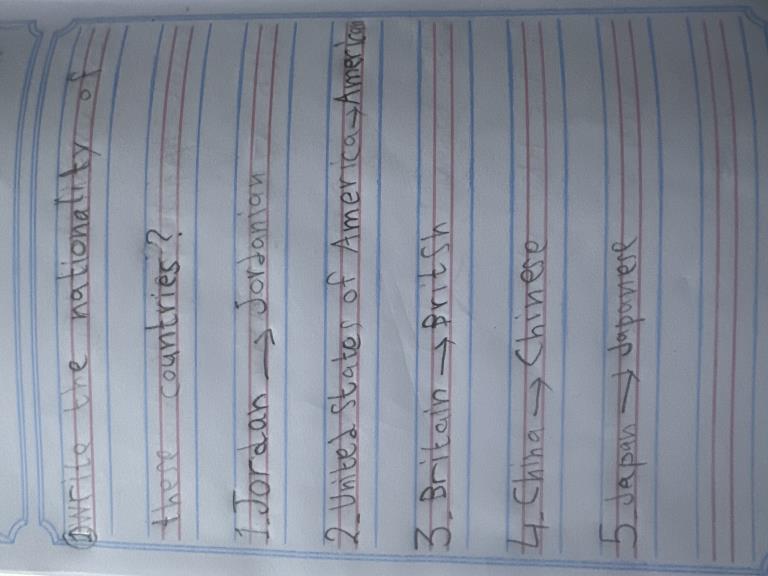 ① write the nationality of
these countries?
1_Jordan → Jordanian
2_United States of America→American
3_Britain → Britsh
4_China → Chinese
5_Japan → Japanese